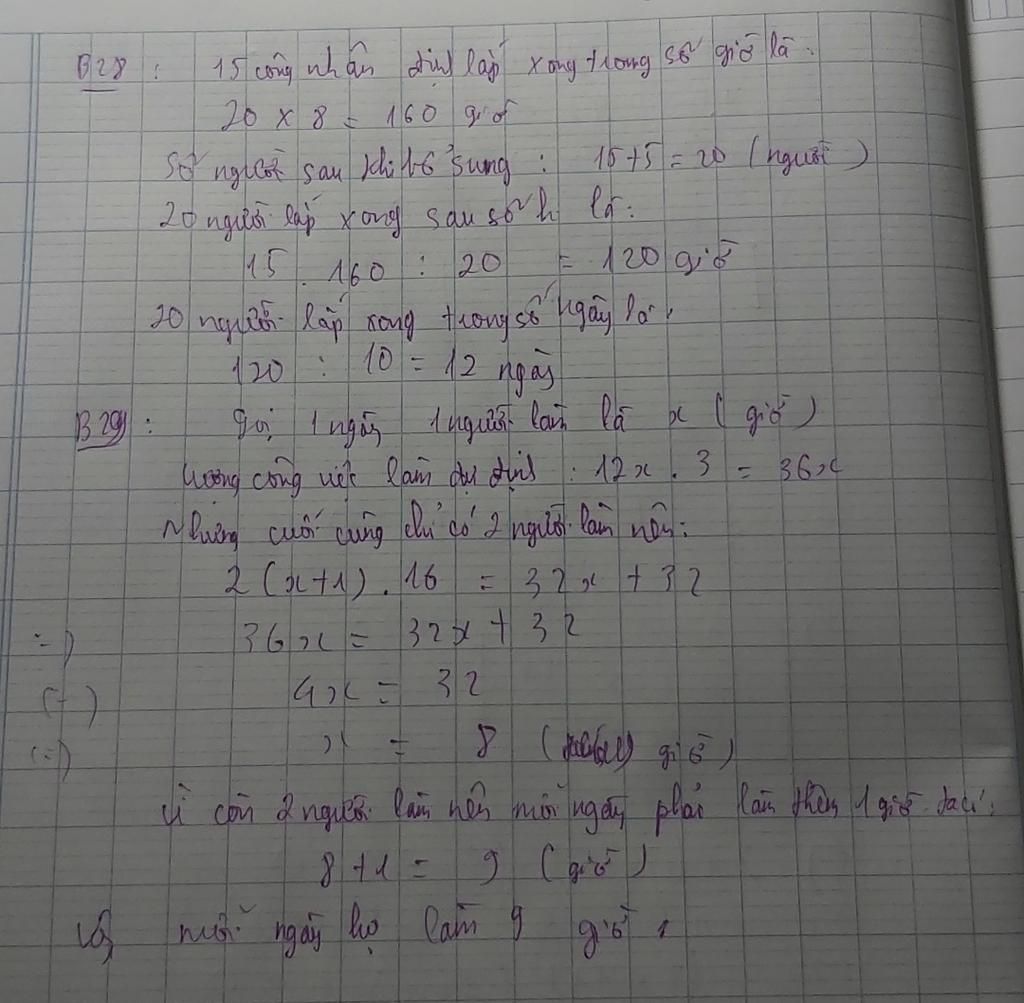 B28 : 15 công nhân định lắp xong trong số giờ là :
20 x 8 = 160 giờ
Số người sau khi bổ sung : 15+5 = 20 (người)
20 người lắp xong sau số h là :
15 . 160 : 20 = 120 giờ
20 người lắp xong trong số ngày là :
120 : 10 = 12 ngày
B29 : gọi 1 ngày 1 người làm là x (giờ)
Lượng công việc làm dự định : 12x . 3 = 36x
Nhưng cuối cùng chỉ có 2 người làm nên :
2(x+1) . 16 = 32x + 32
=) 36x = 32x + 32
(=) 4x = 32
(=) x = 8 ( giờ)
Vì còn 2 người làm nên mỗi ngày phải làm thêm 1 giờ
8 + 1 = 9 (giờ)
Vậy mỗi ngày họ làm 9 giờ .